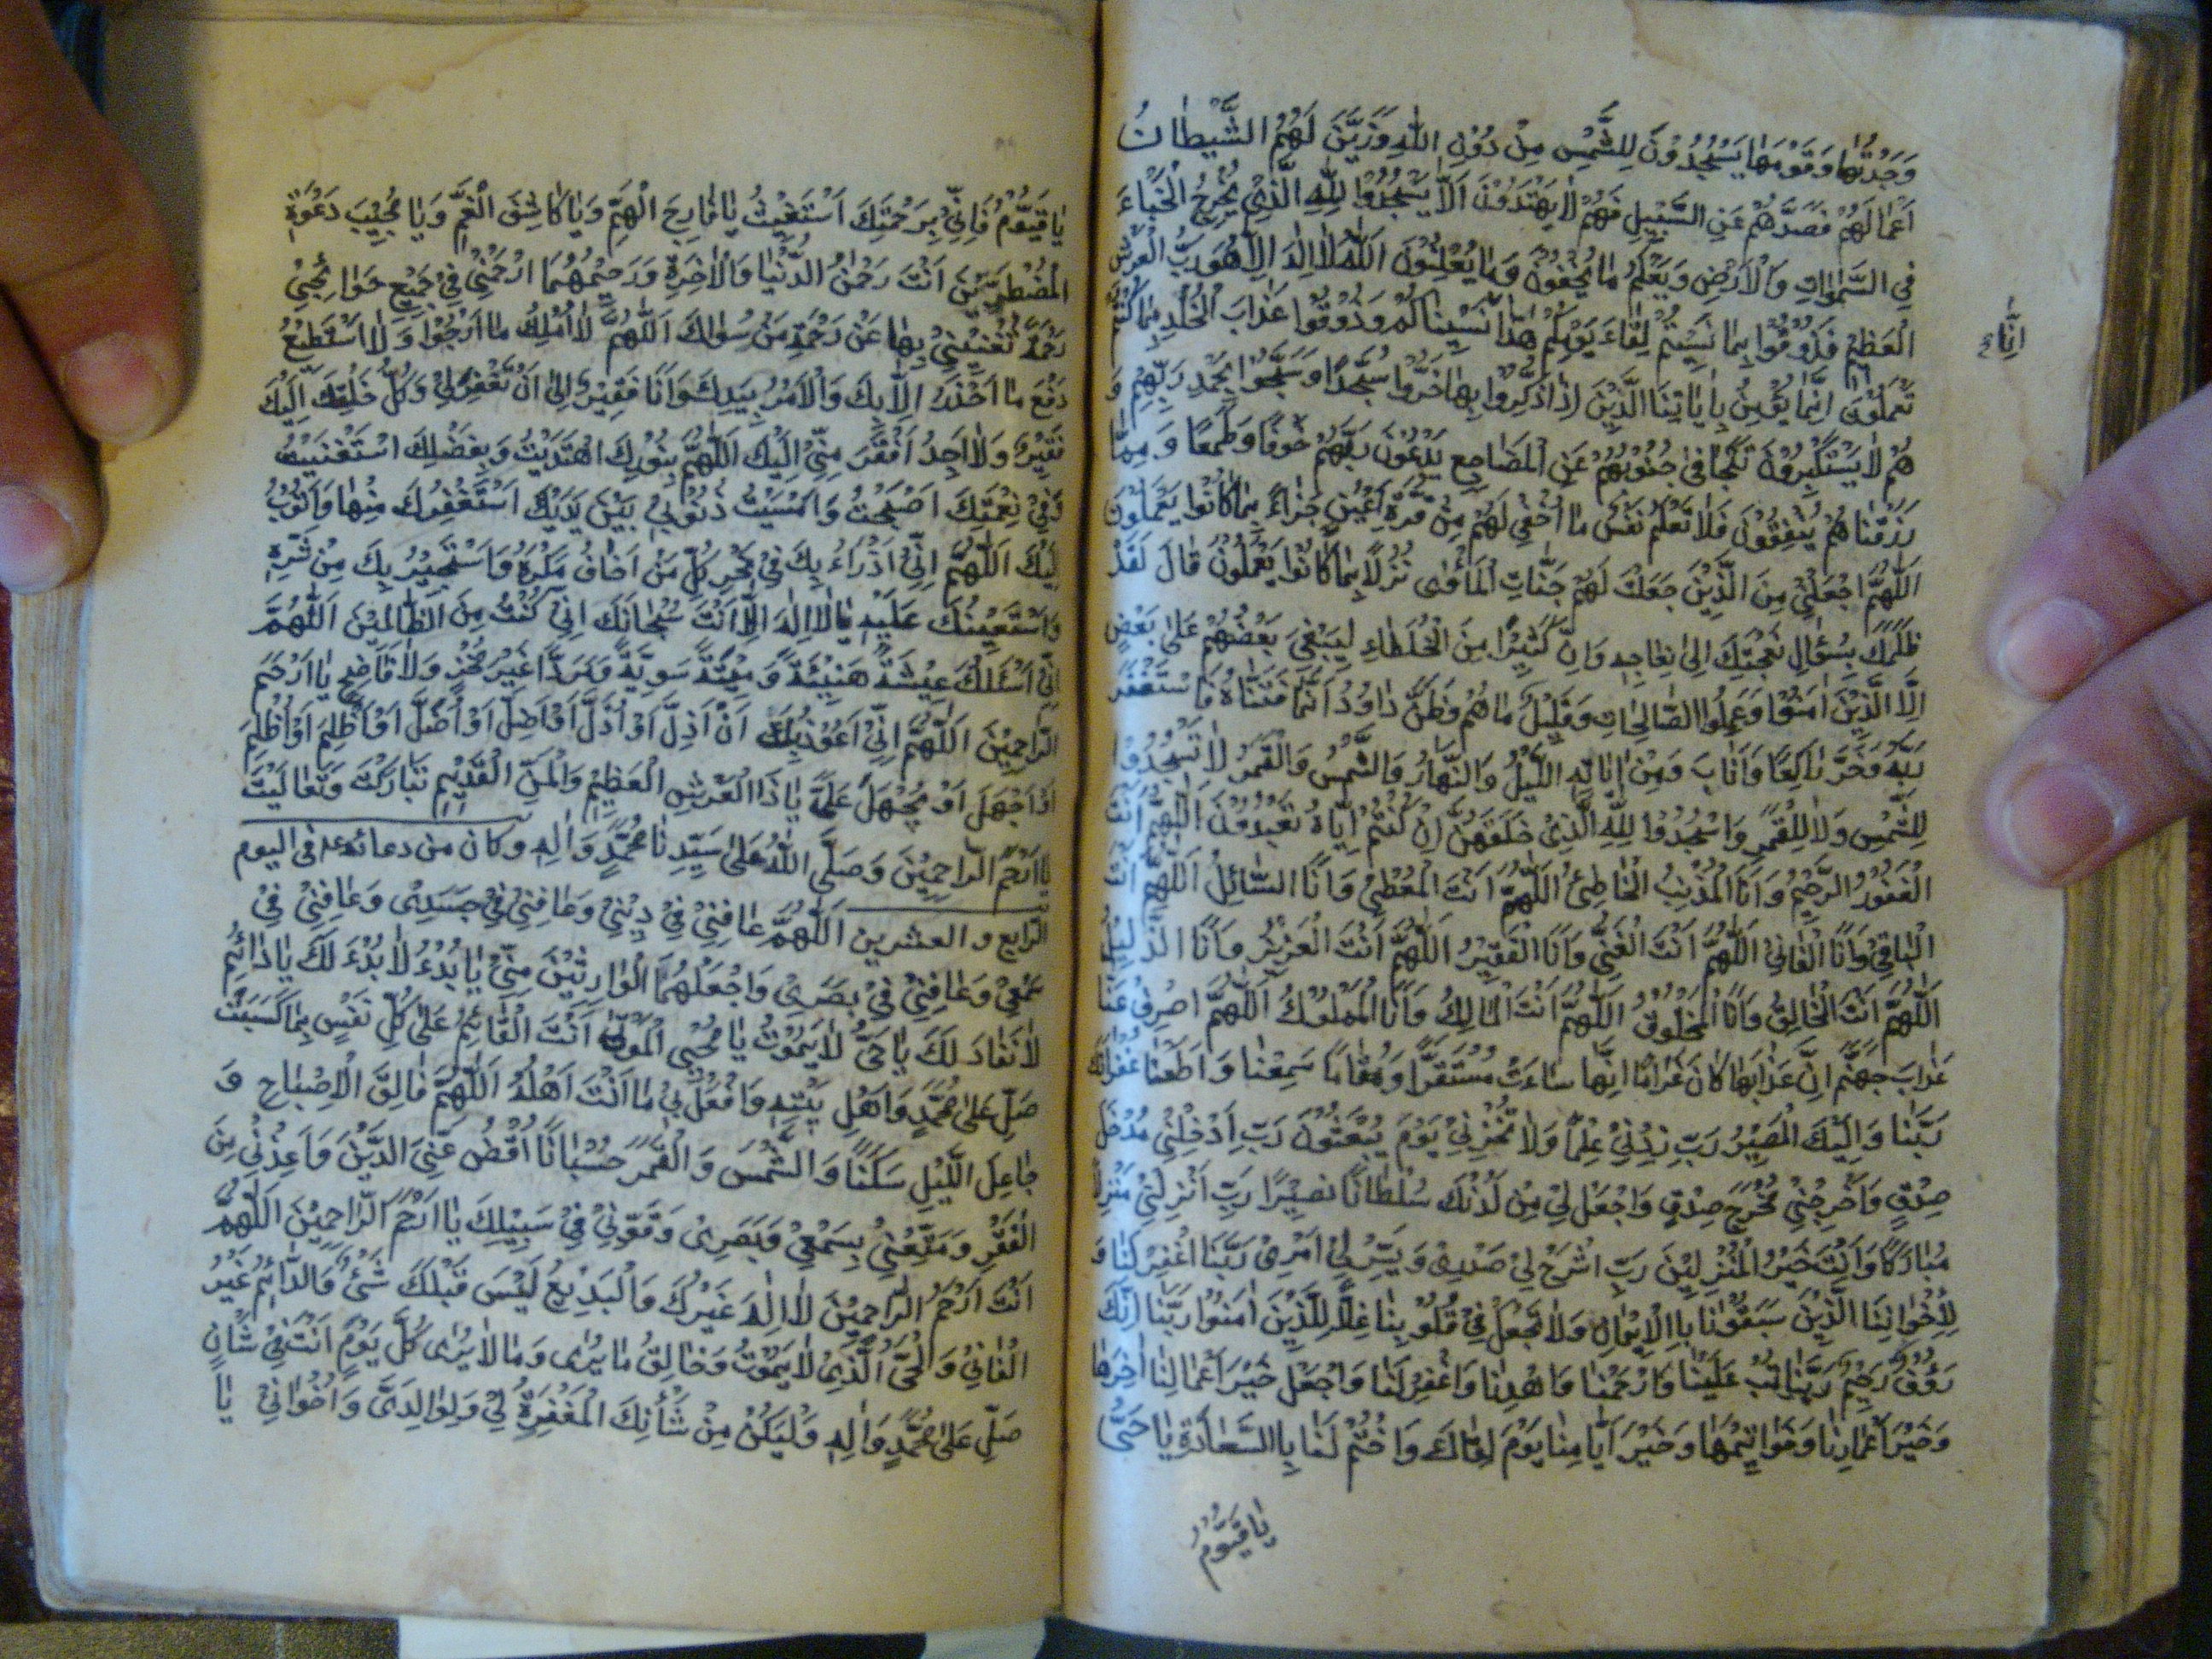 وَجَدْتُهَا وَقَوْمَهَا يَسْجُدُونَ لِلشَّمْسِ مِنْ دُوْنِ اللّٰهِ وَزَيَّنَ لَهُمُ الشَّيْطَانُ
اَعْمَالَهُمْ فَصَدَّهُمْ عَنِ السَّبِيْلِ فَهُمْ لَا يَهْتَدُوْنَ اَلَّا يَسْجُدُوْا لِلّٰهِ الَّذِيْ يُخْرِجُ الْخَبْاءَ
فِي السَّمٰوَاتِ وَالْاَرْضِ وَيَعْلَمُ مَا يُخْفُوْنَ وَمَا يُعْلِنُوْنَ اَللّٰهُ لَا اِلٰهَ اِلَّا هُوَ رَبُّ الْعَرْشِ
الْعَظِيْمِ فَذُوْقُوْا بِمَا نَسِيْتُمْ لِقَاءَ يَوْمِكُمْ هٰذَا نَسِيْنَاكُمْ وَذُوْقُوْا عَذَابَ الْخُلْدِ بِمَا كُنْتُمْ
اِنَّا
تَعْمَلُوْنَ اِنَّمَا يُؤْمِنُ بِاٰيَاتِنَا الَّذِيْنَ اِذَا ذُكِّرُوْا بِهَا خَرُّوْا سُجَّدًا وَسَبَّحُوْا بِحَمْدِ رَبِّهِمْ وَ
هُمْ لَا يَسْتَكْبِرُوْنَ تَتَجَافٰى جُنُوْبُهُمْ عَنِ الْمَضَاجِعِ يَدْعُوْنَ رَبَّهُمْ خَوْفًا وَطَمَعًا وَمِمَّا
رَزَقْنَاهُمْ يُنْفِقُوْنَ فَلَا تَعْلَمُ نَفْسٌ مَا اُخْفِيَ لَهُمْ مِنْ قُرَّةِ اَعْيُنٍ جَزَاءً بِمَا كَانُوْا يَعْمَلُوْنَ
اَللّٰهُمَّ اجْعَلْنِيْ مِنَ الَّذِيْنَ جَعَلْتَ لَهُمْ جَنَّاتِ الْمَأْوٰى نُزُلًا بِمَا كَانُوْا يَعْمَلُوْنَ قَالَ لَقَدْ
ظَلَمَكَ بِسُؤَالِ نَعْجَتِكَ اِلٰى نِعَاجِهِ وَاِنَّ كَثِيْرًا مِنَ الْخُلَطَاءِ لَيَبْغِيْ بَعْضُهُمْ عَلٰى بَعْضٍ
اِلَّا الَّذِيْنَ اٰمَنُوْا وَعَمِلُوا الصَّالِحَاتِ وَقَلِيْلٌ مَا هُمْ وَظَنَّ دَاوُدُ اَنَّمَا فَتَنَّاهُ فَاسْتَغْفَرَ
رَبَّهُ وَخَرَّ رَاكِعًا وَاَنَابَ وَمِنْ اٰيَاتِهِ اللَّيْلُ وَالنَّهَارُ وَالشَّمْسُ وَالْقَمَرُ لَا تَسْجُدُوْا
لِلشَّمْسِ وَلَا لِلْقَمَرِ وَاسْجُدُوْا لِلّٰهِ الَّذِيْ خَلَقَهُنَّ اِنْ كُنْتُمْ اِيَّاهُ تَعْبُدُوْنَ اَللّٰهُمَّ اَنْتَ
الْغَفُوْرُ الرَّحِيْمُ وَاَنَا الْمُذْنِبُ الْخَاطِئُ اَللّٰهُمَّ اَنْتَ الْمُعْطِيْ وَاَنَا السَّائِلُ اَللّٰهُمَّ اَنْتَ
الْبَاقِيْ وَاَنَا الْفَانِيْ اَللّٰهُمَّ اَنْتَ الْغَنِيُّ وَاَنَا الْفَقِيْرُ اَللّٰهُمَّ اَنْتَ الْعَزِيْزُ وَاَنَا الذَّلِيْلُ
اَللّٰهُمَّ اَنْتَ الْخَالِقُ وَاَنَا الْمَخْلُوْقُ اَللّٰهُمَّ اَنْتَ الْمَالِكُ وَاَنَا الْمَمْلُوْكُ اَللّٰهُمَّ اصْرِفْ عَنَّا
عَذَابَ جَهَنَّمَ اِنَّ عَذَابَهَا كَانَ غَرَامًا اِنَّهَا سَاءَتْ مُسْتَقَرًّا وَمُقَامًا سَمِعْنَا وَاَطَعْنَا غُفْرَانَكَ
رَبَّنَا وَاِلَيْكَ الْمَصِيْرُ رَبِّ زِدْنِيْ عِلْمًا وَلَا تُخْزِنِيْ يَوْمَ يُبْعَثُوْنَ رَبِّ اَدْخِلْنِيْ مُدْخَلَ
صِدْقٍ وَاَخْرِجْنِيْ مُخْرَجَ صِدْقٍ وَاجْعَلْ لِيْ مِنْ لَدُنْكَ سُلْطَانًا نَصِيْرًا رَبِّ اَنْزِلْنِيْ مُنْزَلًا
مُبَارَكًا وَاَنْتَ خَيْرُ الْمُنْزِلِيْنَ رَبِّ اشْرَحْ لِيْ صَدْرِيْ وَيَسِّرْ لِيْ اَمْرِيْ رَبَّنَا اغْفِرْ لَنَا وَ
لِاِخْوَانِنَا الَّذِيْنَ سَبَقُوْنَا بِالْاِيْمَانِ وَلَا تَجْعَلْ فِيْ قُلُوْبِنَا غِلًّا لِلَّذِيْنَ اٰمَنُوْا رَبَّنَا اِنَّكَ
رَؤُفٌ رَحِيْمٌ رَبَّنَا تُبْ عَلَيْنَا وَارْحَمْنَا وَاهْدِنَا وَاغْفِرْ لَنَا وَاجْعَلْ خَيْرَ اَعْمَالِنَا اٰخِرَهَا
وَخَيْرَ اَعْمَارِنَا وَخَوَاتِيْمَهَا وَخَيْرَ اَيَّامِنَا يَوْمَ لِقَاكَ وَاخْتُمْ لَنَا بِالسَّعَادَةِ يَا حَيُّ
يَا قَيُّوْمُ
يَا قَيُّوْمُ فَاِنِّيْ بِرَحْمَتِكَ اَسْتَغِيْثُ يَا فَارِجَ الْهَمِّ وَيَا كَاشِفَ الْغَمِّ وَيَا مُجِيْبَ دَعْوَةِ
الْمُضْطَرِّيْنَ اَنْتَ رَحْمٰنُ الدُّنْيَا وَالْاٰخِرَةِ وَرَحِيْمُهُمَا ارْحَمْنِيْ فِيْ جَمِيْعِ حَوَائِجِيْ
رَحْمَةً تُغْنِيْنِيْ بِهَا عَنْ رَحْمَةِ مَنْ سِوَاكَ اَللّٰهُمَّ لَا اَمْلِكُ مَا اَرْجُوْا وَلَا اَسْتَطِيْعُ
دَفْعَ مَا اَحْذَرُ اِلَّا بِكَ وَالْاَمْرُ بِيَدِكَ وَاَنَا فَقِيْرٌ اِلٰى اَنْ تَغْفِرَ لِيْ وَكُلُّ خَلْقِكَ اِلَيْكَ
فَقِيْرٌ وَلَا اَجِدُ اَفْقَرَ مِنِّيْ اِلَيْكَ اَللّٰهُمَّ بِنُوْرِكَ اهْتَدَيْتُ وَبِفَضْلِكَ اسْتَغْنَيْتُ
وَفِيْ نِعْمَتِكَ اَصْبَحْتُ وَاَمْسَيْتُ ذُنُوْبِيْ بَيْنَ يَدَيْكَ اَسْتَغْفِرُكَ مِنْهَا وَاَتُوْبُ
اِلَيْكَ اَللّٰهُمَّ اِنِّيْ اَدْرَاُ بِكَ فِيْ نَحْرِ كُلِّ مَنْ اَخَافُ مَكْرَهُ وَاَسْتَجِيْرُ بِكَ مِنْ شَرِّهِ
وَاَسْتَعِيْنُكَ عَلَيْهِ يَا لَا اِلٰهَ اِلَّا اَنْتَ سُبْحَانَكَ اِنِّيْ كُنْتُ مِنَ الظَّالِمِيْنَ اَللّٰهُمَّ
اِنِّيْ اَسْئَلُكَ عِيْشَةً هَنِيْئَةً وَمِيْتَةً سَوِيَّةً وَمَرَدًّا غَيْرَ مُخْزٍ وَلَا فَاضِحٍ يَا اَرْحَمَ
الرَّاحِمِيْنَ اَللّٰهُمَّ اِنِّيْ اَعُوْذُ بِكَ اَنْ اَذِلَّ اَوْ اُذَلَّ اَوْ اَضِلَّ اَوْ اُضَلَّ اَوْ اَظْلِمَ اَوْ اُظْلَمَ
اَوْ اَجْهَلَ اَوْ يُجْهَلَ عَلَيَّ يَا ذَا الْعَرْشِ الْعَظِيْمِ وَالْمَنِّ الْقَدِيْمِ تَبَارَكْتَ وَتَعَالَيْتَ
يَا اَرْحَمَ الرَّاحِمِيْنَ وَصَلَّى اللّٰهُ عَلٰى سَيِّدِنَا مُحَمَّدٍ وَاٰلِهِ وكان من دعائه ع فى اليوم
الرابع و العشرين اَللّٰهُمَّ عَافِنِيْ فِيْ دِيْنِيْ وَعَافِنِيْ فِيْ جَسَدِيْ وَعَافِنِيْ فِيْ
سَمْعِيْ وَعَافِنِيْ فِيْ بَصَرِيْ وَاجْعَلْهُمَا الْوَارِثَيْنَ مِنِّيْ يَا بَدْءُ لَا بَدْءَ لَكَ يَا دَائِمُ
لَا نَفَادَ لَكَ يَا حَيُّ لَا يَمُوْتُ يَا مُحْيِيَ الْمَوْتٰى اَنْتَ الْقَائِمُ عَلٰى كُلِّ نَفْسٍ بِمَا كَسَبَتْ
صَلِّ عَلٰى مُحَمَّدٍ وَاَهْلِ بَيْتِهِ وَافْعَلْ بِيْ مَا اَنْتَ اَهْلُهُ اَللّٰهُمَّ فَالِقَ الْاِصْبَاحِ وَ
جَاعِلَ اللَّيْلِ سَكَنًا وَالشَّمْسَ وَالْقَمَرَ حُسْبَانًا اقْضِ عَنِّيَ الدَّيْنَ وَاَعِذْنِيْ مِنَ
الْفَقْرِ وَمَتِّعْنِيْ بِسَمْعِيْ وَبَصَرِيْ وَقَوِّنِيْ فِيْ سَبِيْلِكَ يَا اَرْحَمَ الرَّاحِمِيْنَ اَللّٰهُمَّ
اَنْتَ اَرْحَمُ الرَّاحِمِيْنَ لَا اِلٰهَ غَيْرُكَ وَالْبَدِيْعُ لَيْسَ قَبْلَكَ شَيْءٌ وَالدَّائِمُ غَيْرُ
الْفَانِيْ وَالْحَيُّ الَّذِيْ لَا يَمُوْتُ وَخَالِقُ مَا يُرٰى وَمَا لَا يُرٰى كُلَّ يَوْمٍ اَنْتَ فِيْ شَأْنٍ
صَلِّ عَلٰى مُحَمَّدٍ وَاٰلِهِ وَلْيَكُنْ مِنْ شَأْنِكَ الْمَغْفِرَةُ لِيْ وَلِوَالِدَيَّ وَاِخْوَانِيْ يَا